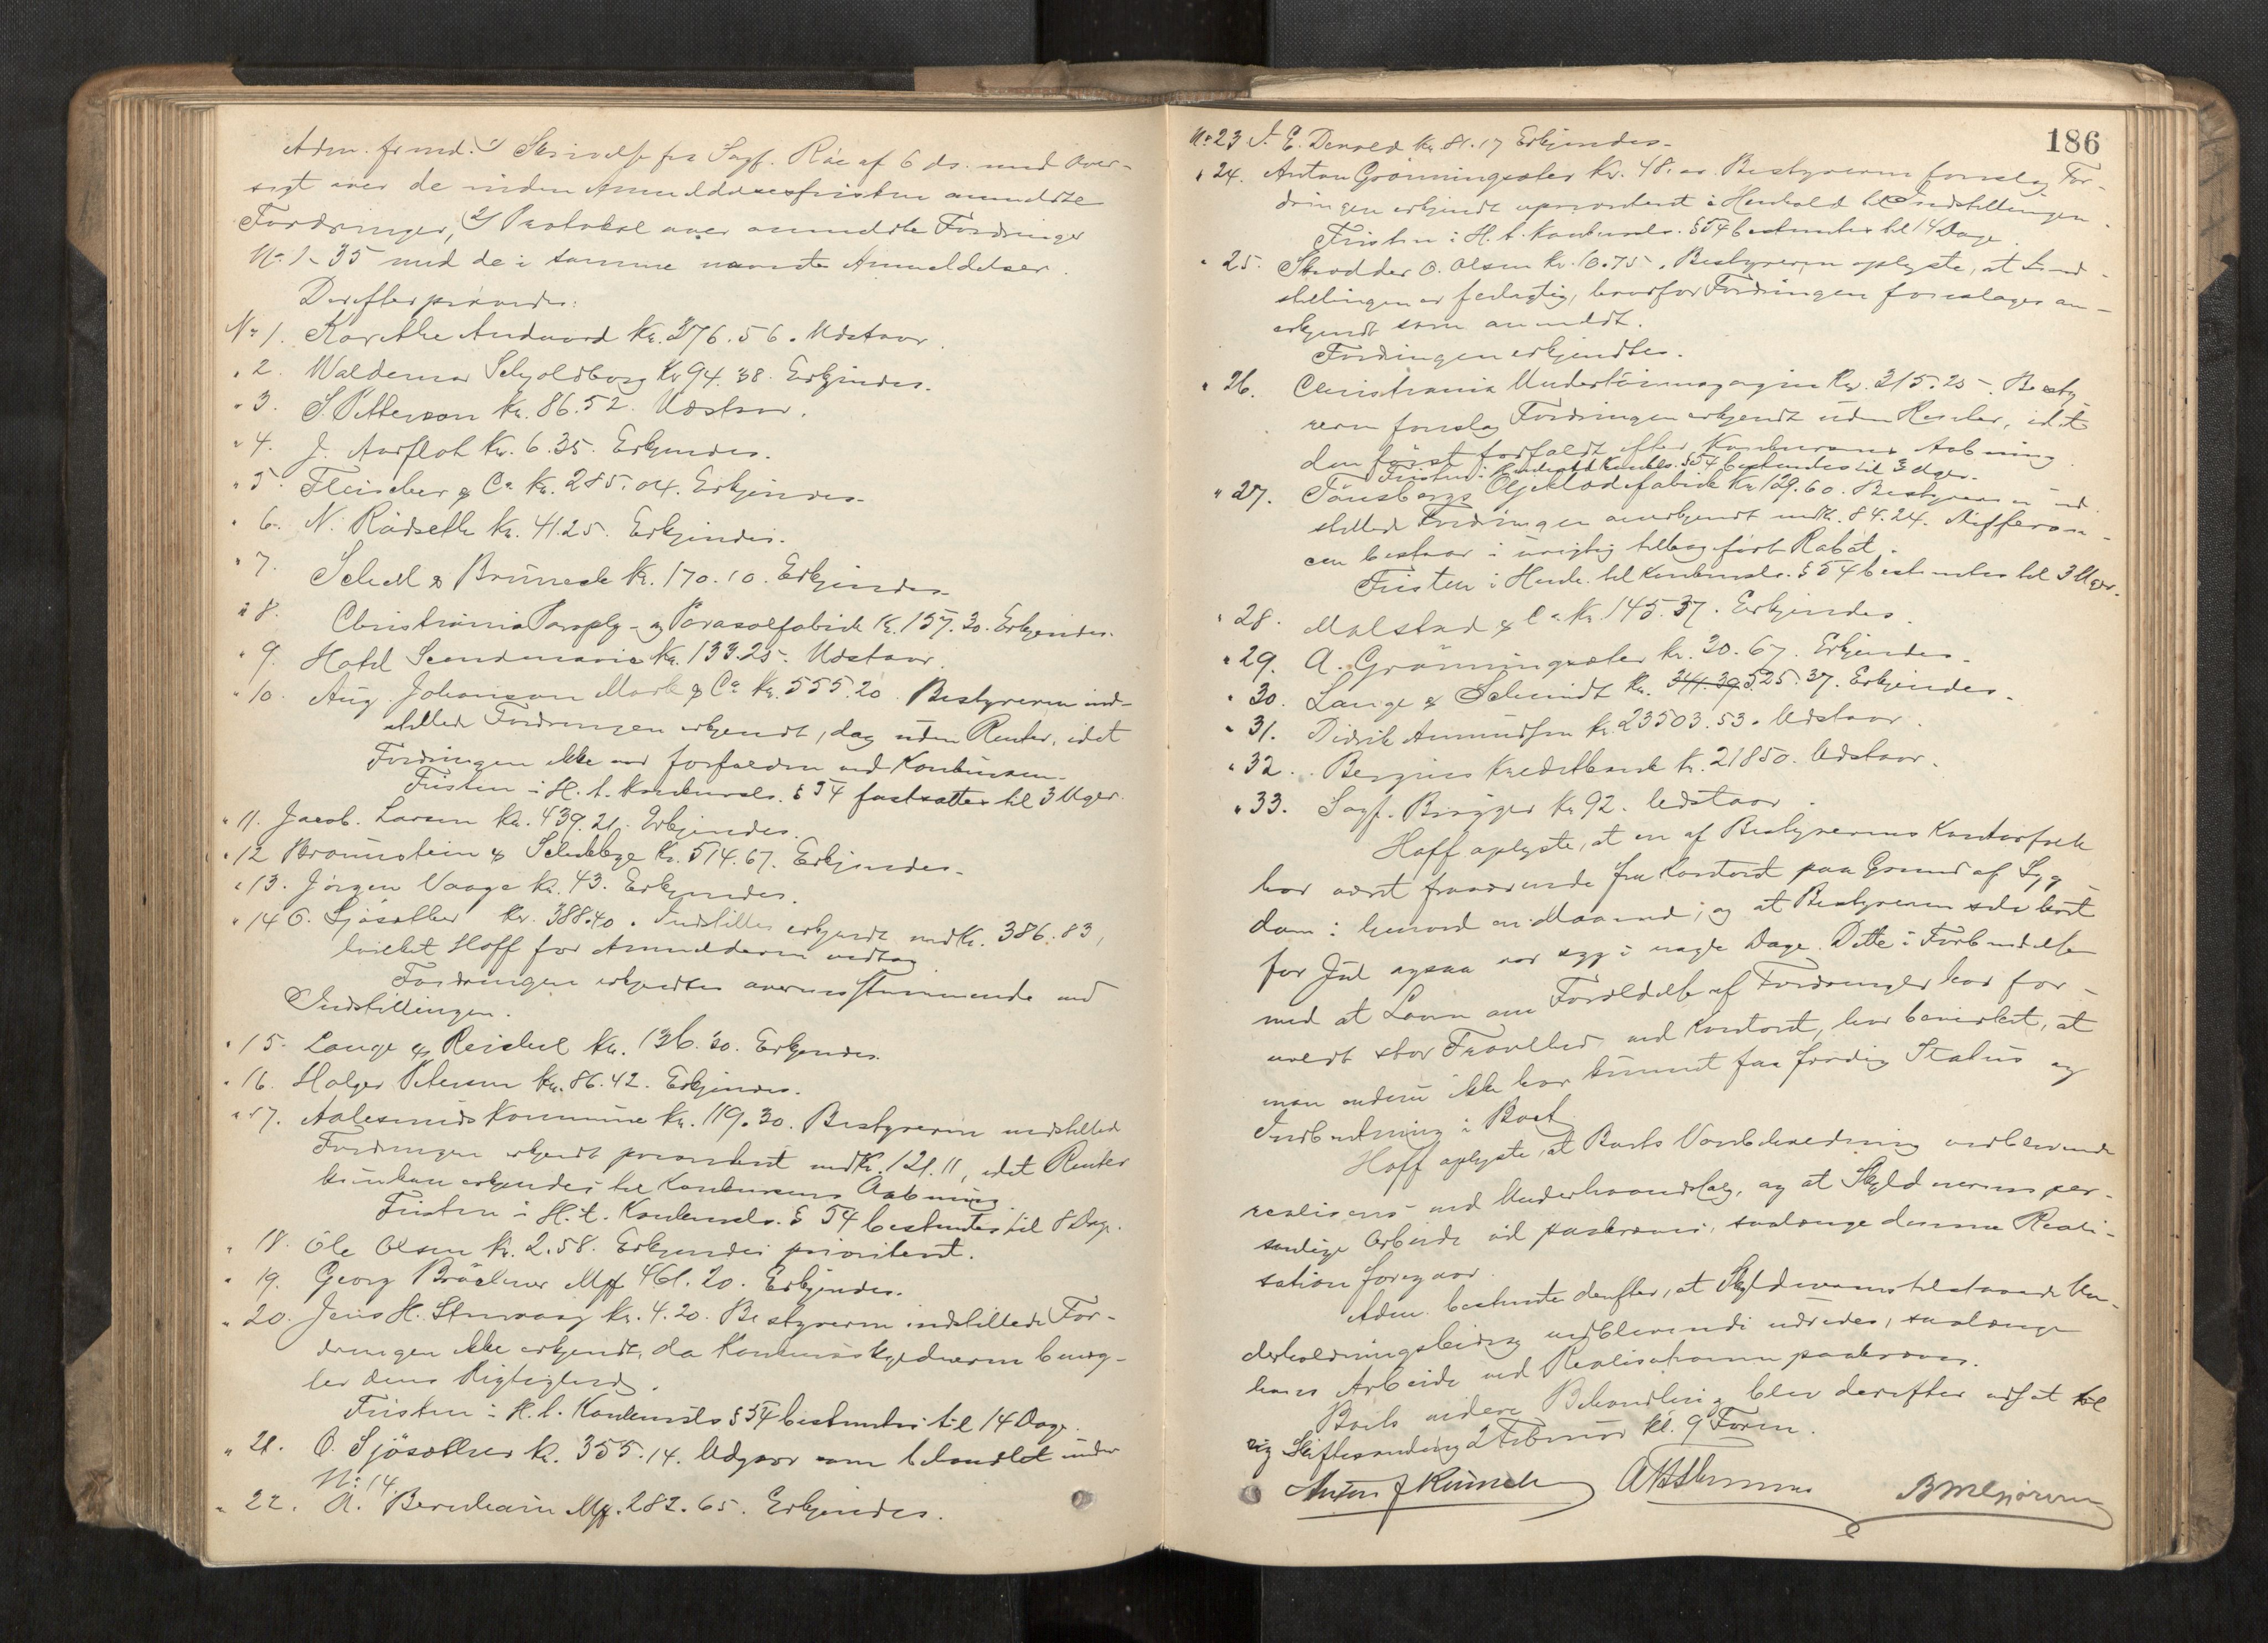 Adm. freml. 1) Skrivelse fra Sagf. Råe af 6 ds. med Over-
sigt over de inden Anmeldelsesfristen anmeldte
Fordringer, 2) Protokol over anmeldte Fordringer
No 1-35 med de i samme nævnte Anmeldelser.
Derefter prøvedes:
No 1. Karethe Andvord Kr. 376.56. Udstaar.
" 2. Waldemar Schjoldborg Kr 94.38. Erkjendes.
" 3. S. Petterson Kr. 86.52. Udstaar.
" 4. J. Aarflot Kr. 6.35. Erkjendes.
" 5. Fleischer & Co Kr. 285.04. Erkjendes.
" 6. N. Rådseth Kr. 41.25. Erkjendes.
" 7. Schell & Brünech Kr. 170.10. Erkjendes.
" 8. Christiania Paraply- og Parasolfabrik Kr. 157.30. Erkjendes.
" 9. Hotel Scandinavie Kr. 133.25. Udstaar.
" 10. Aug. Johanson Mark & Co Kr. 555.20. Bestyreren ind-
stillede Fordringen erkjendt, dog uden Renter, idet
Fordringen ikke var forfalden ved Konkursen.
Fristen i H. t. Konkursls. § 54 fastsattes til 3 Uger.
" 11. Jacob Larsen Kr. 439.21. Erkjendes.
" 12 Braunstein & Schibbye Kr. 514.67. Erkjendes.
" 13. Jørgen Vaage Kr. 43. Erkjendes.
" 14 O. Sjøsæther Kr. 388.40. Indstilles erkjendt med Kr. 386.83,
hvilket Hoff for Anmelderen vedtog.
Fordringen erkjendtes overensstemmende med
Indstillingen.
" 15. Lange & Reichel Kr. 136.30. Erkjendes.
" 16. Holger Petersen Kr. 86.42. Erkjendes.
" 17. Aalesunds Kommune Kr. 119.30. Bestyreren indstilled
Fordringen erkjendt prioritert med Kr. 121.11, idet Renter
kun kan erkjendes til Konkursens Aabning.
Fristen i H. t. Konkursls. § 54 bestemtes til 8 Dage.
" 18. Ole Olsen Kr. 2.58. Erkjendes prioritert.
" 19. Georg Brückner Mk 461.20. Erkjendes.
" 20. Jens H. Stenvaag Kr. 4.20. Bestyreren indstillede For-
dringen ikke erkjendt, da Konkursskyldneren benæg-
ter dens Rigtighed.
Fristen i H. t. Konkursls § 54 bestemtes til 14 Dage.
" 21. O. Sjøsæther Kr. 355.14. Udgaar som behandlet under
No 14.
" 22. A. Bernhaim Mk. 282.65. Erkjendes.
186
No 23 J. E. Devold Kr. 81.17 Erkjendes.
" 24. Anton Grønningsæter Kr. 48. Bestyreren foreslog For-
dringen erkjendt uprioritert i Henhold til Indstillingen.
Fristen i H. t. Konkursls. § 54 bestemtes til 14 Dage.
" 25. Skrædder O. Olsen Kr. 10.75. Bestyreren oplyste, at Ind-
stillingen er feilagtig, hvorfor Fordringen foreslages an-
erkjendt som anmeldt.
Fordringen erkjendtes.
" 26. Christiania Undertøimagazin Kr. 315.25. Besty-
reren foreslog Fordringen erkjendt uden Renter, idet
den først forfaldt efter Konkursens Aabning.
Fristen i Henhold Konkls. § 54 bestemtes til 3 Uger.
" 27. Tønsbergs Oljeklædefabrik Kr 129.60. Bestyreren ind-
stillede Fordringen anerkjendt med Kr. 84.24. Differen-
cen bestaar i urigtig tilbageført Rabat.
Fristen i Henh. til Konkursls. § 54 bestemtes til 3 Uger.
" 28. Malstad & Co Kr. 145.37. Erkjendes.
" 29. A. Grønningsæter Kr. 30.67. Erkjendes.
" 30. Lange & Schmidt Kr. 311.39 525.37. Erkjendes.
" 31. Didrik Amundsen Kr. 23503.53. Udstaar.
" 32. Bergens Kreditbank Kr. 21850. Udstaar.
" 33. Sagf. Brygger Kr 92. Udstaar.
Hoff oplyste, at en af Bestyrerens Kontorfolk
har været fraværende fra Kontoret paa Grund af Syg-
dom i henved en Maaned; og at Bestyreren selv først
før Jul ogsaa var syg i nogle Dage. Dette i Forbindelse
med at Loven om Forældelse af Fordringer har for-
voldt stor Travelhed ved Kontoret, har bevirket, at
man endnu ikke har kunnet faa færdig Status og
Indberetning i Boet.
Hoff oplyste, at Boets Varebeholdning vedblivende
realiseres ved Underhaandssalg, og at Skyldnerens per-
sonlige Arbeide vil paakræves, saalænge denne Reali-
sation foregaar.
Adm. bestemte derefter, at Skyldnerens tilstaaede Un-
derholdningsbidrag vedblivende udredes, saalænge
hans Arbeide ved Realisationen paakræves.
Boets videre Behandling blev derefter udsat til
Skiftesamling 2 Februar kl. 9 Form.